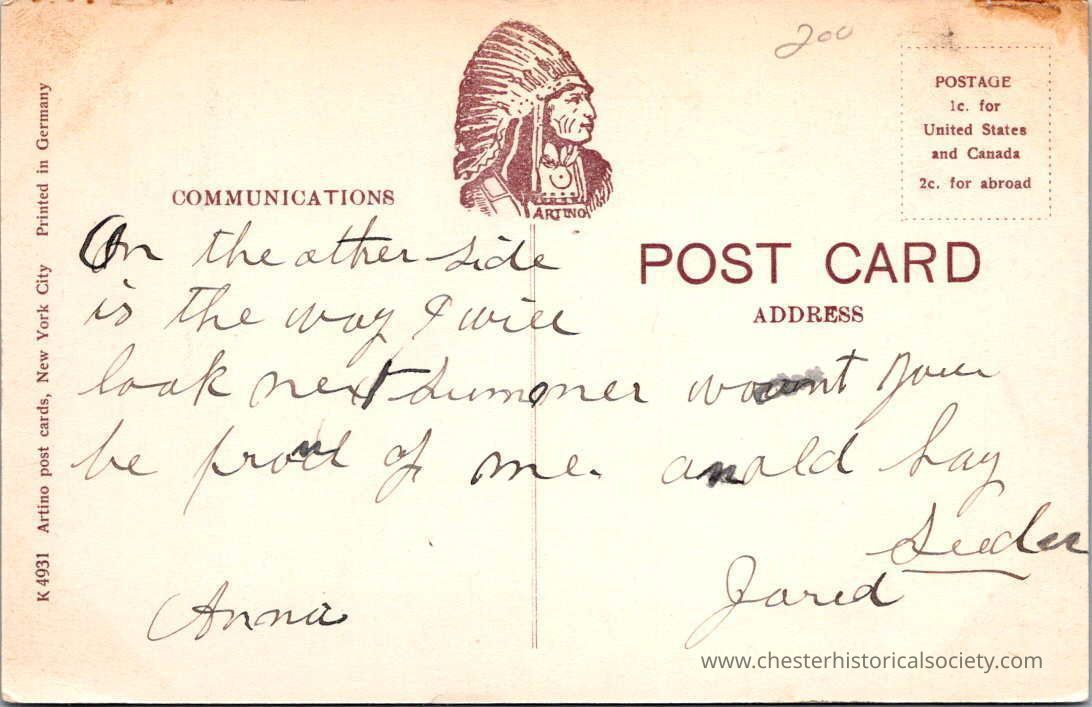 200
POSTAGE
1c. for
United States
and Canada
2c. for abroad
ARTINO
COMMUNICATIONS
POST CARD
ADDRESS
On the other side
is the way I will
look next summer wount your
be proud of me. an old hay
Seeder
Jared
Anna
K 4931 Artino post cards, New York City Printed in Germany
www.chesterhistoricalsociety.com